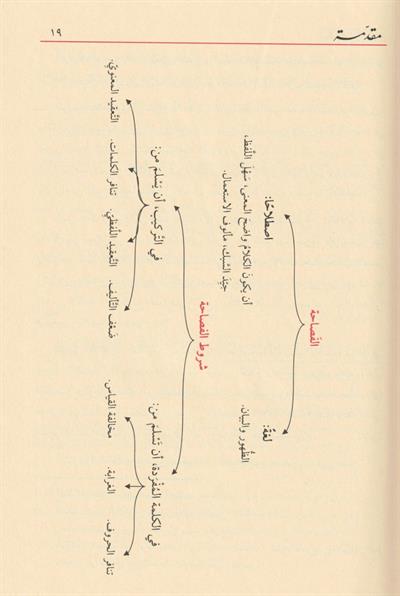 مقدّمة
١٩
الفَصاحة
لغةً:
الظُّهور والبيان.
اصطلاحًا:
أن يكونَ الكلامُ واضحَ المعنى، سَهْلَ اللَّفظ،
جيِّدَ السَّبك، مألوفَ الاستعمال.
شروط الفصاحة
في الكلمة المُفْرَدة، أن تَسْلَمَ من:
تنافر الحروف.
الغرابة.
مخالفة القياس.
في التَّركيب، أن يَسْلمَ من:
ضَعْف التَّأليف.
التَّعقيد اللَّفظيّ.
تنافر الكلمات.
التَّعقيد المعنويّ.